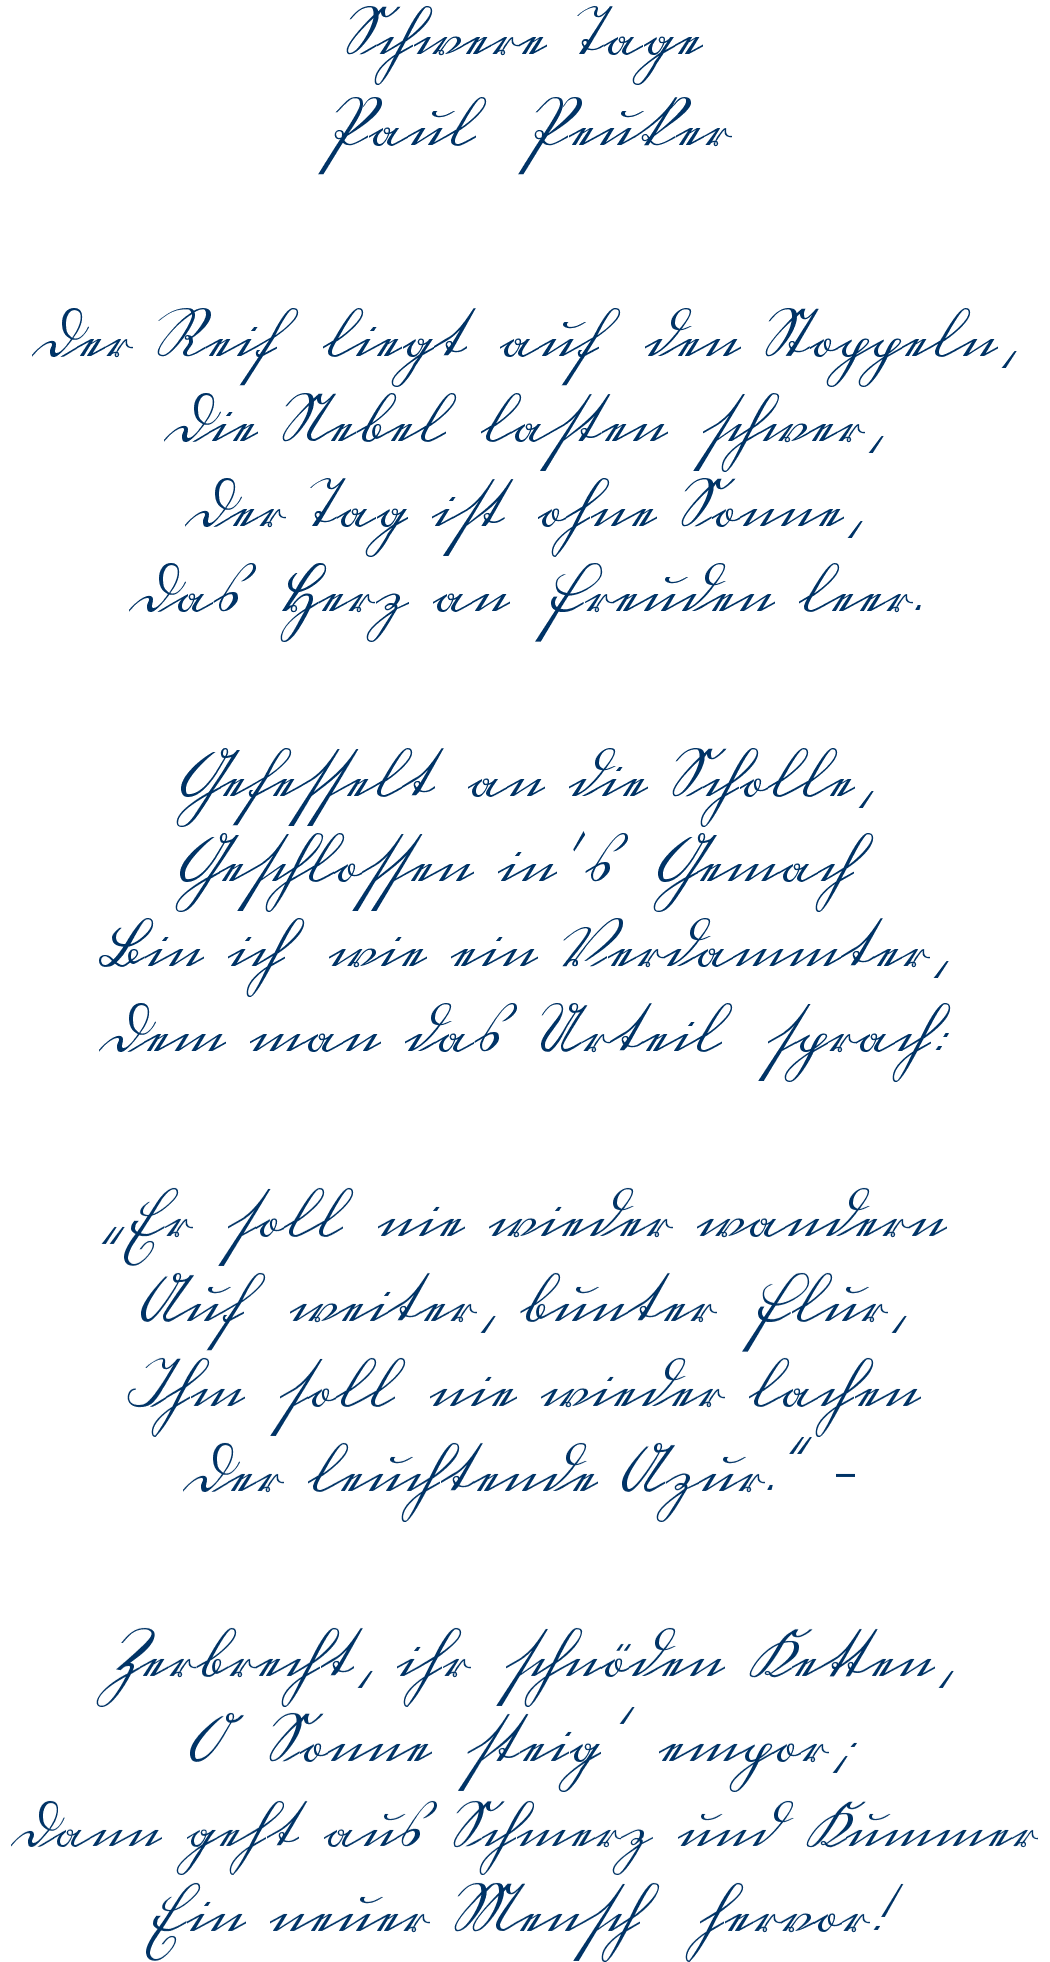 Schwere Tage
Paul Peuker
Der Reif liegt auf den Stoppeln,
Die Nebel lasten schwer,
Der Tag ist ohne Sonne,
Das Herz an Freuden leer.
Gefesselt an die Scholle,
Geschlossen in's Gemach
Bin ich wie ein Verdammter,
Dem man das Urteil sprach:
„Er soll nie wieder wandern
Auf weiter, bunter Flur,
Ihm soll nie wieder lachen
Der leuchtende Azur.“ –
Zerbrecht, ihr schnöden Ketten,
O Sonne steig' empor;
Dann geht aus Schmerz und Kummer
Ein neuer Mensch hervor!